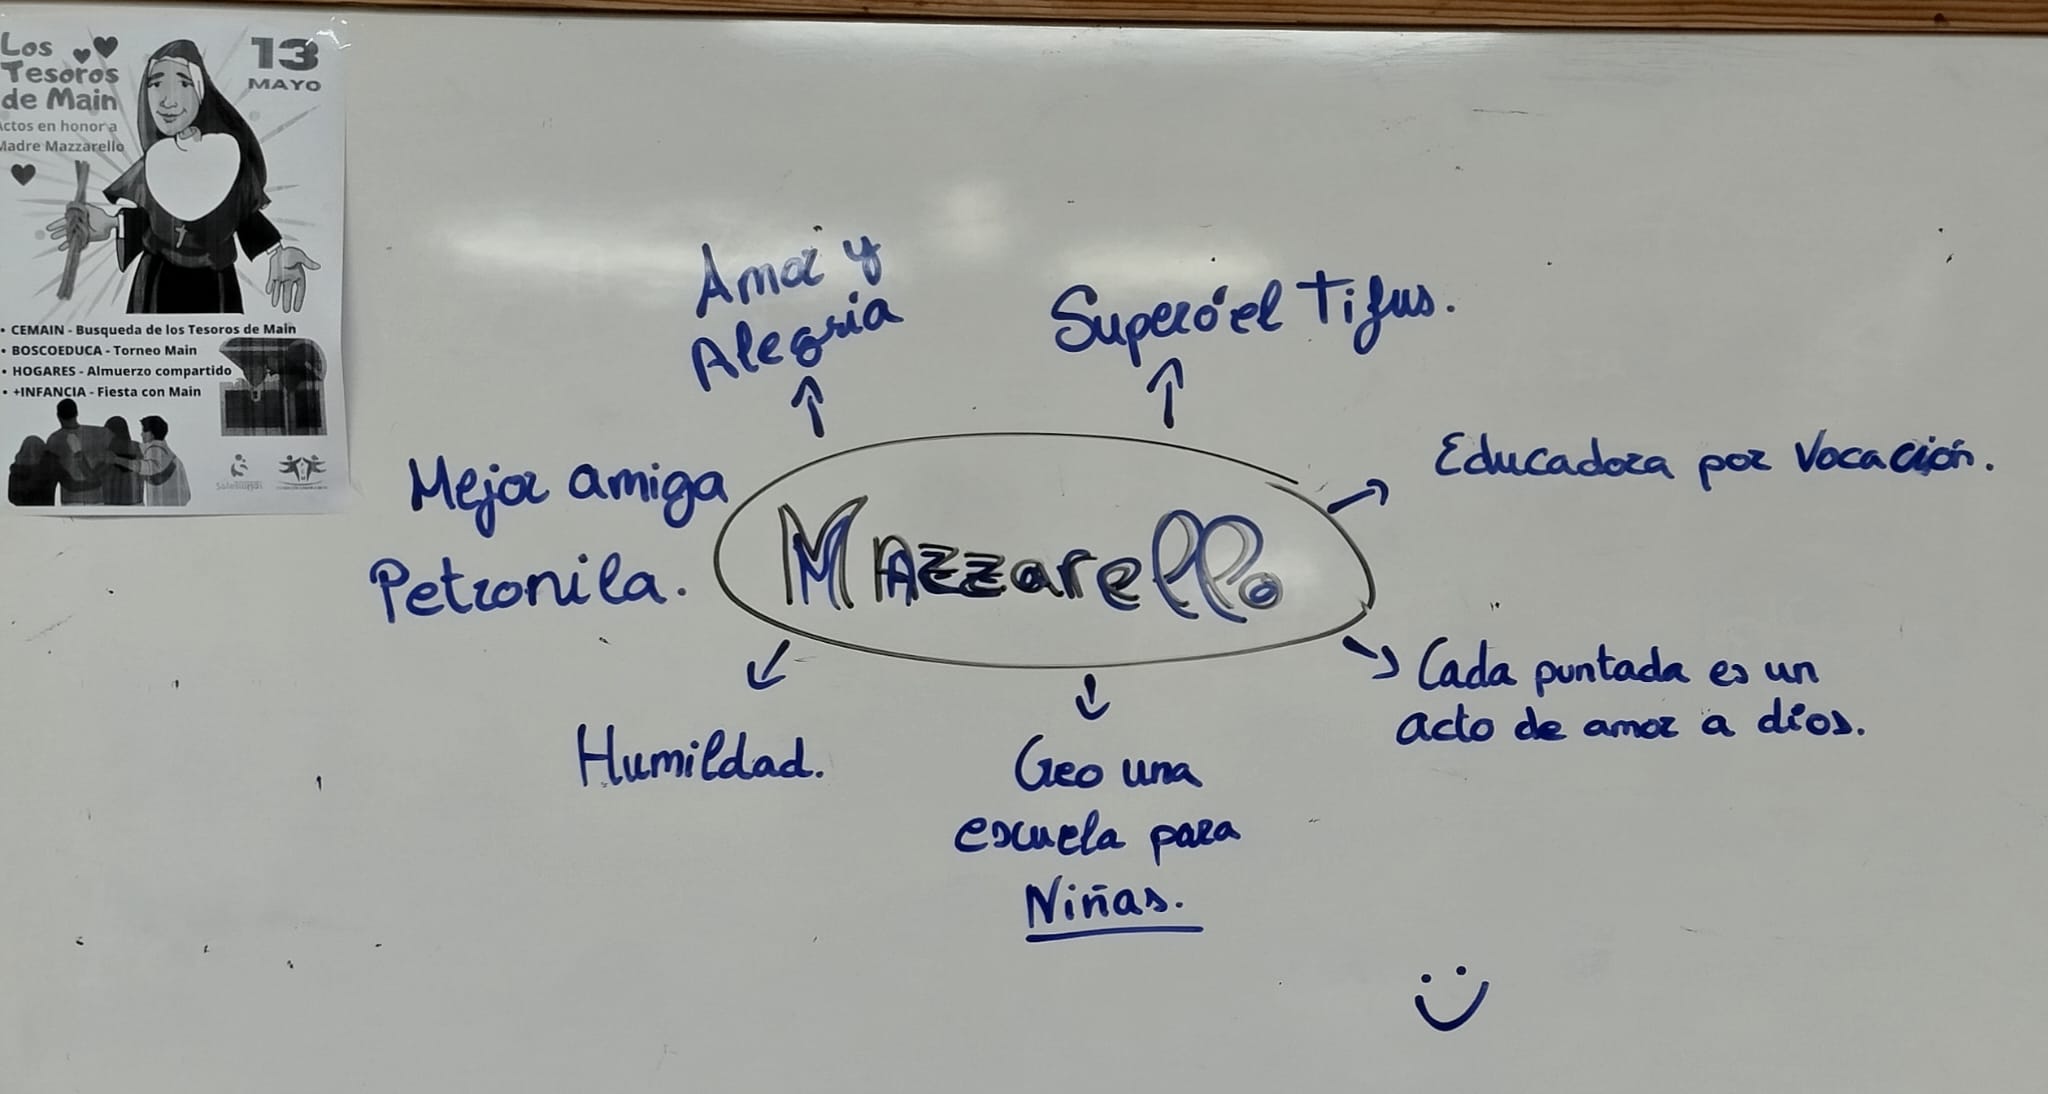 Los
Tesoros
de Main
Actos en honor a
Madre Mazzarello
13
MAYO
• CEMAIN - Busqueda de los Tesoros de Main
• BOSCOEDUCA - Torneo Main
• HOGARES - Almuerzo compartido
• +INFANCIA - Fiesta con Main
Amor y
Alegria
Superó el Tifus.
Mejor amiga
Petronila.
Mazzarello
Educadora por Vocación.
Cada puntada es un
acto de amor a dios.
Humildad.
Creo una
escuela para
Niñas.